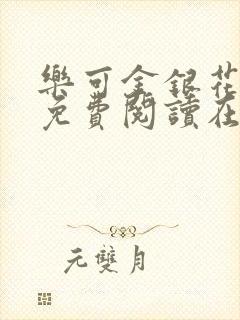 樂可金銀花
免費閱讀在
元雙月